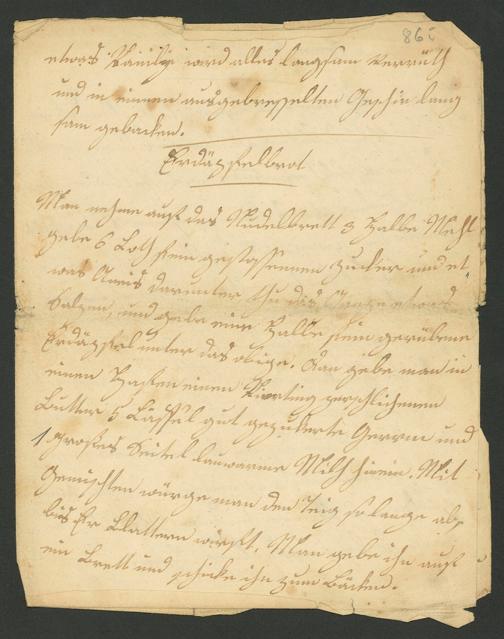 86
etwas Vanilje wird alles langsam verrüth
und in einem ausgebresselten Geschir lang
sam gebacken.
Erdäpfelbrot
Man nehme auf das Nudelbrett 3 Halbe Mehl
gebe 6 Loth fein gestossenen Zucker und et
was Anis darunter thu das Ganze etwas
Salzen, und gebe eine Halbe fein geriebene
Erdäpfel unter das obige. Dan gebe man in
einen Hafen einen Vierting zerschlichenen
Butter 5 Löffel gut gezukerte Germ und
1 großes Seitel lauwarme Milch hinein. Mit
Gemischten würge man den Teig so lange ab,
bis Er Blattern wirft. Man gebe ihn auf
ein Brett und schicke ihn zum Bäcken.